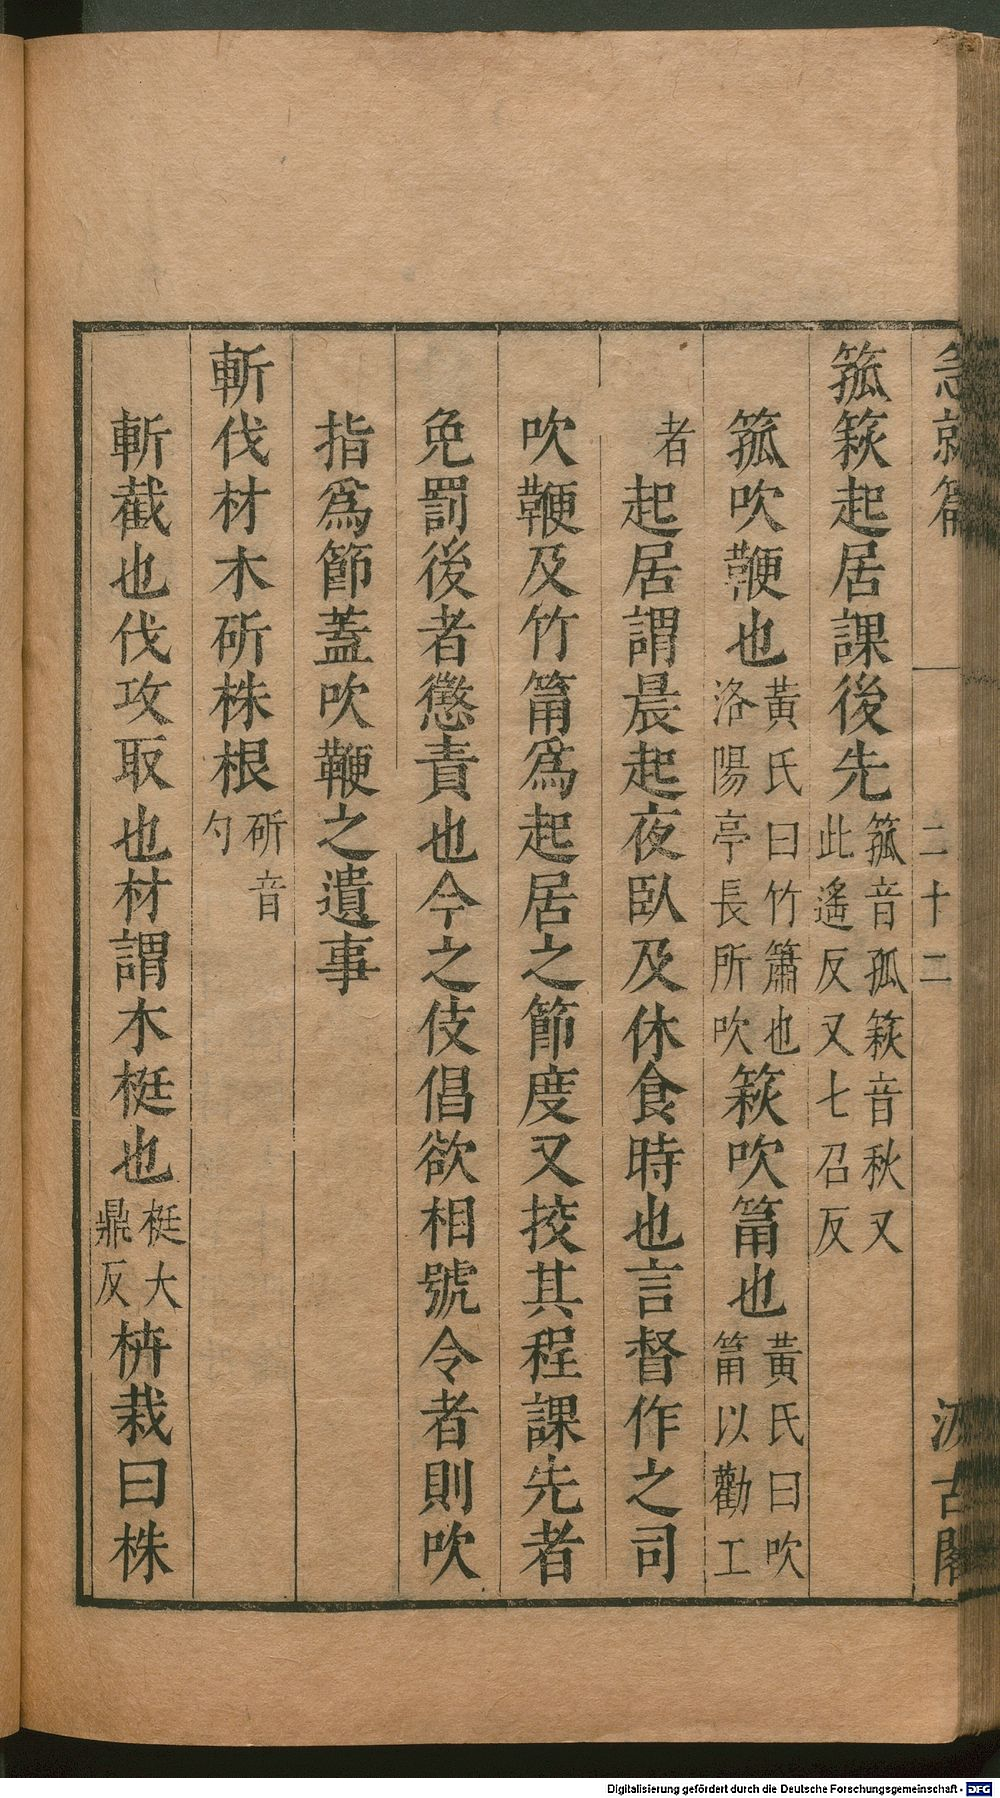 急就篇 二十二 汲古閣
箛篍起居課後先箛音孤篍音秋又此遙反又七召反
箛吹鞭也黃氏曰竹簫也洛陽亭長所吹篍吹筩也黃氏曰吹筩以勸工
者起居謂晨起夜臥及休食時也言督作之司
吹鞭及竹筩爲起居之節度又挍其程課先者
免罰後者懲責也今之伎倡欲相號令者則吹
指爲節蓋吹鞭之遺事
斬伐材木斫株根斫音勺
斬截也伐攻取也材謂木梃也梃大鼎反枿栽曰株
Digitalisierung gefördert durch die Deutsche Forschungsgemeinschaft - DFG